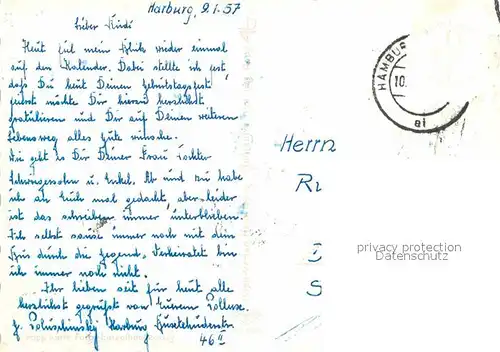 Harburg, 9.1.57
Lieber Rudi
Heut fiel mein Blick wieder einmal
auf den Kalender. Dabei stellte ich fest
daß Du heut Deinen Geburtstagsfest
feierst möchte Dir hierzu herzlichst
gratulieren und Dir auf Deinen weiteren
Lebensweg alles gute wünsche.
Wie geht es Dir Deiner Frau Tochter
Schwiegersohn u. Enkel. Ab und zu habe
ich an Euch mal gedacht, aber leider
ist das schreiben immer unterblieben.
Ich selbst sause immer noch mit dem
durch die Gegend. Verheiratet bin
ich immer noch nicht.
Ihr lieben seit für heut alle
herzlichst gegrüßt von Eurem
Harburg
46
HAMBU
10.
Herrn
R
S
privacy protection
Datenschutz